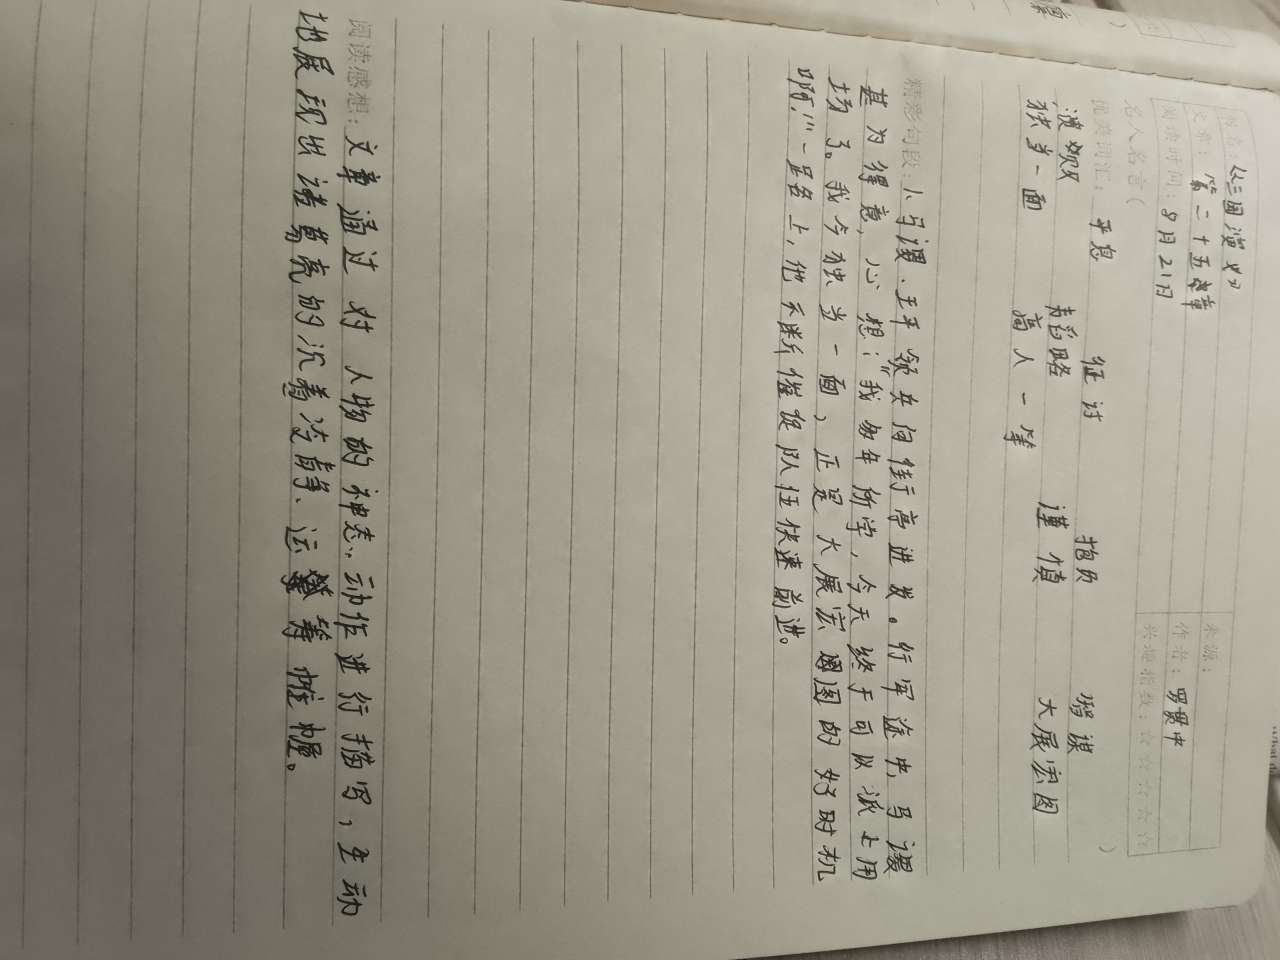 书名：《三国演义》
来源：
文章：第二十五章
作者：罗贯中
阅读时间：8月21日
兴趣指数：☆☆☆☆☆
名人名言（ ）
优美词汇：平息 征讨 抱负 智谋
溃败 韬略 谨慎 大展宏图
独当一面 高人一等
精彩句段：1、马谡、王平领兵向街亭进发。行军途中，马谡
甚为得意，心想：“我多年所学，今天终于可以派上用
场了。我今独当一面，正是大展宏图的好时机
啊！”一路上，他不断催促队伍快速前进。
阅读感想：文章通过对人物的神态、动作进行描写，生动
地展现出诸葛亮的沉着冷静、运筹帷幄。